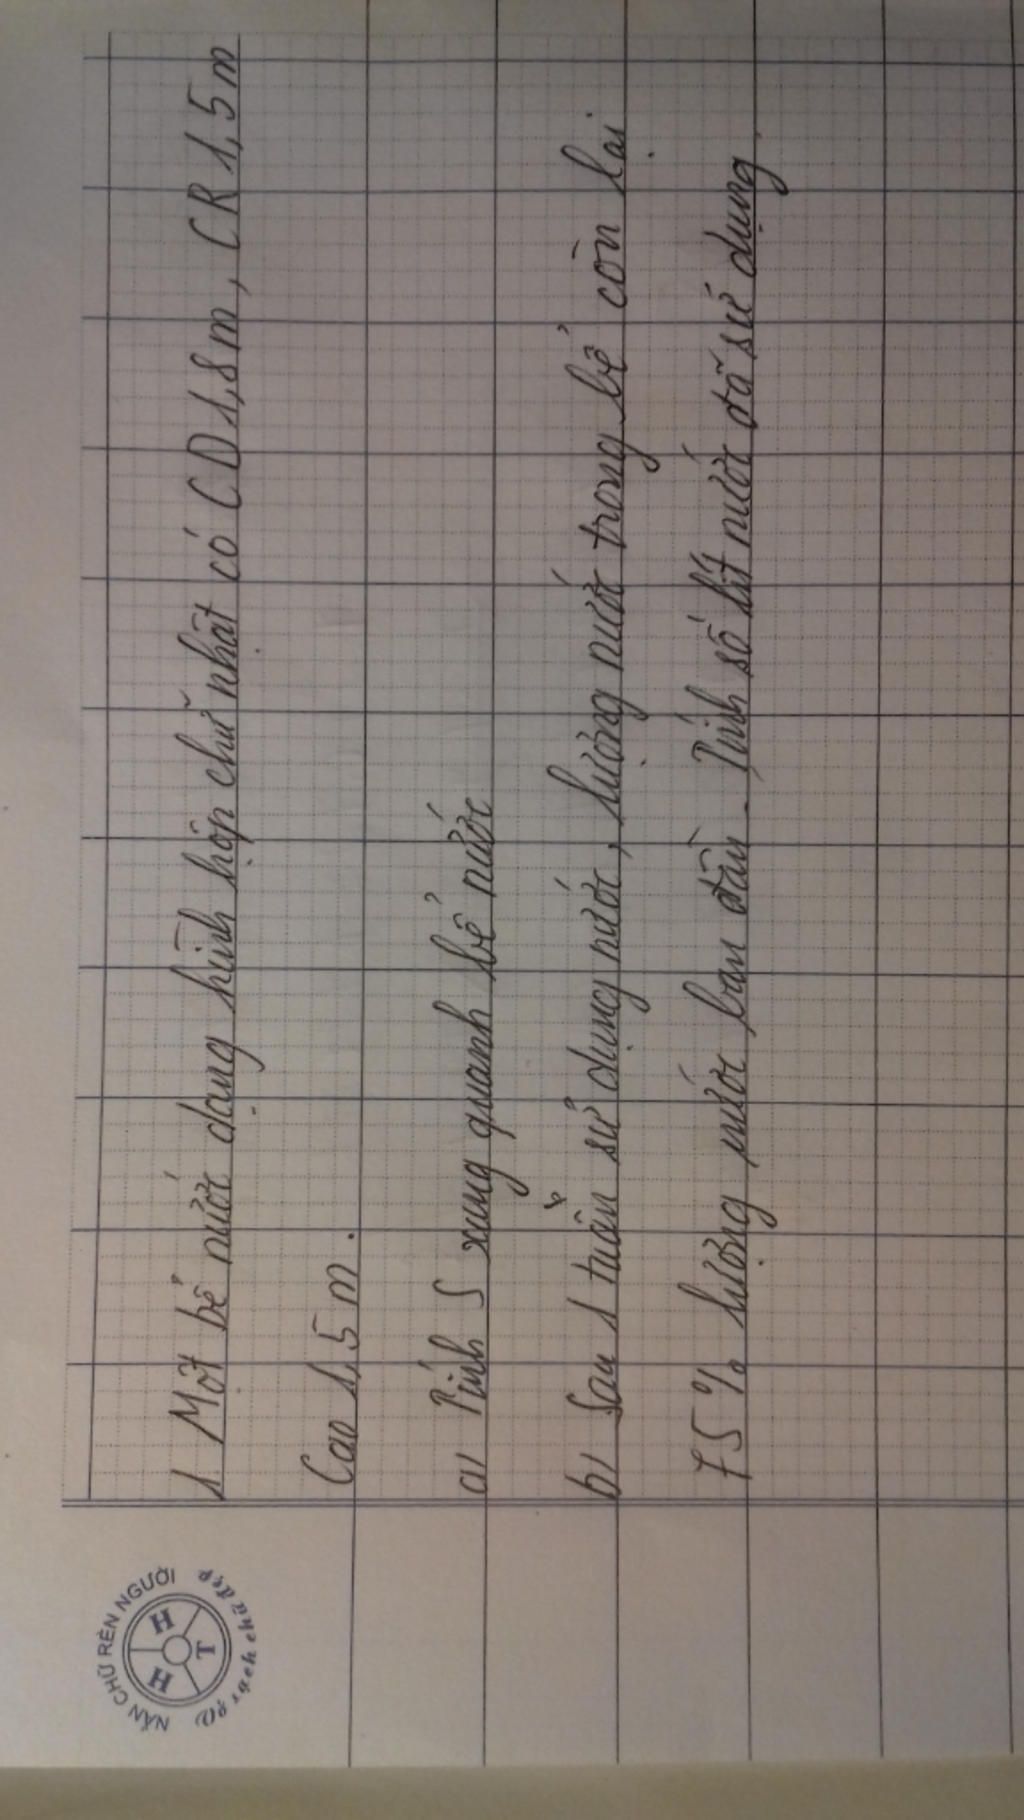 NẮN CHỮ RÈN NGƯỜI
H H T
Vở sạch chữ đẹp
1 Một bể nước dạng hình hộp chữ nhật có CD 1,8m, CR 1,5m
Cao 1,5m.
a) Tính S xung quanh bể nước
b) Sau 1 tuần sử dụng nước, lượng nước trong bể còn lại
75% lượng nước ban đầu. Tính số lít nước đã sử dụng.